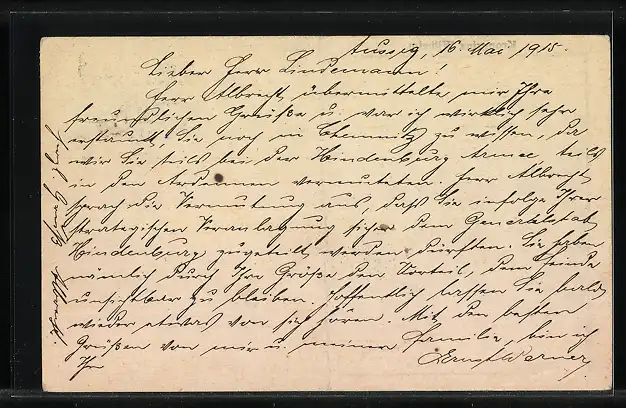 Aussig, 16. Mai 1915.
Lieber Herr Lindemann!
Herr Albrecht übermittelte mir Ihre
freundlichen Grüße u. war ich wirklich sehr
erstaunt, Sie noch in Chemnitz zu wissen, da
wir Sie teils bei der Hindenburg Armee, teils
in den Ardennen vermuteten. Herr Albrecht
sprach die Vermutung aus, daß Sie infolge Ihrer
strategischen Veranlagung sicher dem Generalstab
Hindenburg zugeteilt werden dürften. Sie haben
nämlich durch Ihre Größe den Vorteil, dem Feinde
unsichtbar zu bleiben. Hoffentlich lassen Sie bald
wieder etwas von sich hören. Mit den besten
Grüßen von mir u. meiner Familie, bin ich
Ihr
Ernst Werner